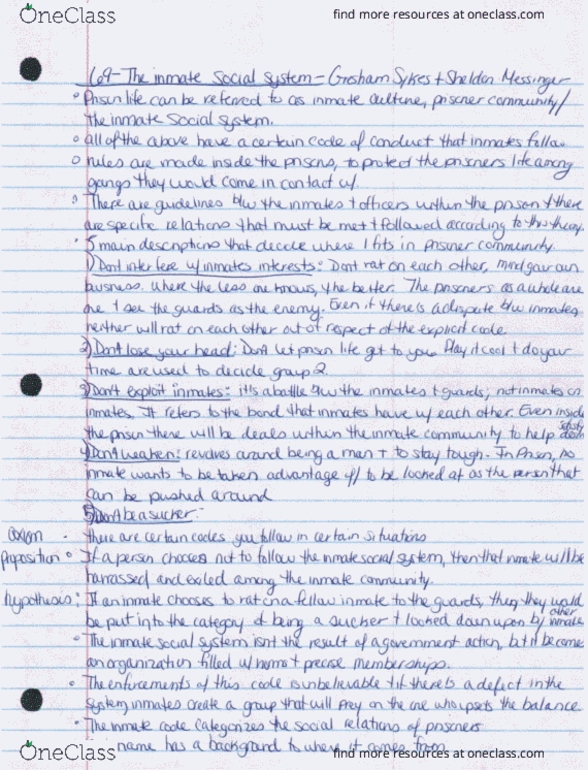 OneClass find more resources at oneclass.com
69-The inmate Social System - Gresham Sykes + Sheldon Messinger
Prison life can be referred to as inmate culture, prisoner community/
the inmate Social System.
all of the above have a certain code of conduct that inmates follow
rules are made inside the prisons, to protect the prisoners life among
gangs they would come in contact w/.
There are guidelines b/w the inmates + officers within the prison + there
are specific relations that must be met + followed according to this theory.
5 main descriptions that decide where 1 fits in prisoner community.
1) Dont interfere w/ inmates interests: Dont rat on each other, mind your own
business. Where the less one knows, the better. The prisoners as a whole are
one + see the guards as the enemy. Even if there is a dispute b/w inmates,
neither will rat on each other out of respect of the explicit code.
2) Don't lose your head: Don't let prison life get to you. Play it cool + do your
time are used to decide group 2.
3) Don't exploit inmates: it is a battle b/w the inmates + guards, not inmates on
inmates. It refers to the bond that inmates have w/ each other. Even inside
the prison there will be deals within the inmate community to help
4) Don't weaken: revolves around being a man + to stay tough. In Prison, no
inmate wants to be taken advantage of/ to be looked at as the person that
can be pushed around
5) Don't be a sucker:
axiom - there are certain codes you follow in certain situations
Proposition If a person chooses not to follow the inmate social system, then that inmate will be
harrassed and exiled among the inmate community.
hypothesis: If an inmate chooses to rat on a fellow inmate to the guards, then they would
be put into the category of being a sucker + looked down upon by other inmate
The inmate social system isnt the result of a government action, but it became
an organization filled w/ norms + precise memberships.
The enforcements of this code is unbelievable + if there is a defect in the
system, inmates create a group that will prey on the one who upsets the balance
The inmate code categorizes the social relations of prisoners
name has a background to where it comes from
OneClass find more resources at oneclass.com